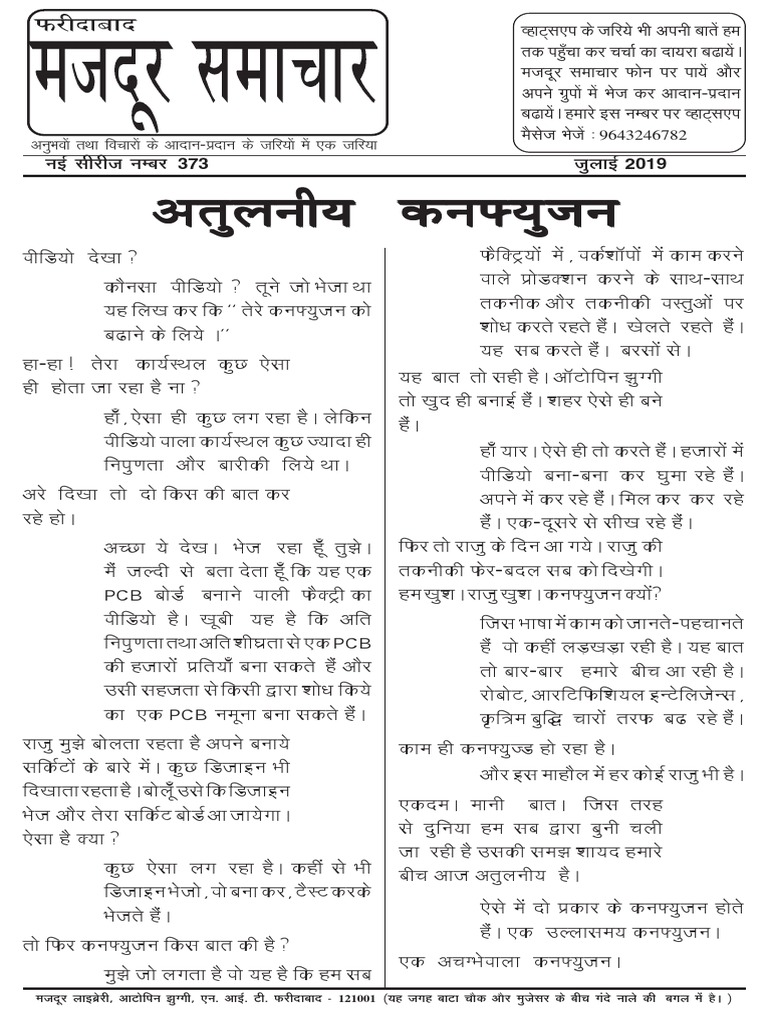 फरीदाबाद
मजदूर समाचार
अनुभवों तथा विचारों के आदान-प्रदान के जरियों में एक जरिया
व्हाट्सएप के जरिये भी अपनी बातें हम
तक पहुँचा कर चर्चा का दायरा बढायें।
मजदूर समाचार फोन पर पायें और
अपने ग्रुपों में भेज कर आदान-प्रदान
बढायें। हमारे इस नम्बर पर व्हाट्सएप
मैसेज भेजें : 9643246782
नई सीरीज नम्बर 373
जुलाई 2019
अतुलनीय कनफ्युजन
पीडियो देखा ?
कौनसा पीडियो ? तूने जो भेजा था
यह लिख कर कि ‘‘ तेरे कनफ्युजन को
बढाने के लिये ।’’
हा-हा ! तेरा कार्यस्थल कुछ ऐसा
ही होता जा रहा है ना ?
हाँ, ऐसा ही कुछ लग रहा है। लेकिन
पीडियो पाला कार्यस्थल कुछ ज्यादा ही
निपुणता और बारीकी लिये था।
अरे दिखा तो दो किस की बात कर
रहे हो।
अच्छा ये देख। भेज रहा हूँ तुझे।
मैं जल्दी से बता देता हूँ कि यह एक
PCB बोर्ड बनाने पाली फैक्ट्री का
पीडियो है। खूबी यह है कि अति
निपुणता तथा अति शीघ्रता से एक PCB
की हजारों प्रतियाँ बना सकते हैं और
उसी सहजता से किसी द्वारा शोध किये
का एक PCB नमूना बना सकते हैं।
राजु मुझे बोलता रहता है अपने बनाये
सर्किटों के बारे में। कुछ डिजाइन भी
दिखाता रहता है। बोलूँ उसे कि डिजाइन
भेज और तेरा सर्किट बोर्ड आ जायेगा।
ऐसा है क्या ?
कुछ ऐसा लग रहा है। कहीं से भी
डिजाइन भेजो, पो बना कर, टैस्ट करके
भेजते हैं।
तो फिर कनफ्युजन किस बात की है ?
मुझे जो लगता है पो यह है कि हम सब
फैक्ट्रियों में, पर्कशॉपों में काम करने
पाले प्रोडक्शन करने के साथ-साथ
तकनीक और तकनीकी पस्तुओं पर
शोध करते रहते हैं। खेलते रहते हैं।
यह सब करते हैं। बरसों से।
यह बात तो सही है। ऑटोपिन झुग्गी
तो खुद ही बनाई हैं। शहर ऐसे ही बने
हैं।
हाँ यार। ऐसे ही तो करते हैं। हजारों में
पीडियो बना-बना कर घुमा रहे हैं।
अपने में कर रहे हैं। मिल कर कर रहे
हैं। एक-दूसरे से सीख रहे हैं।
फिर तो राजु के दिन आ गये। राजु की
तकनीकी फेर-बदल सब को दिखेगी।
हम खुश। राजु खुश। कनफ्युजन क्यों?
जिस भाषा में काम को जानते-पहचानते
हैं पो कहीं लड़खड़ा रही है। यह बात
तो बार-बार हमारे बीच आ रही है।
रोबोट, आरटिफिशियल इन्टेलिजेन्स,
कृत्रिम बुद्धि चारों तरफ बढ रहे हैं।
काम ही कनफ्युज्ड हो रहा है।
और इस माहौल में हर कोई राजु भी है।
एकदम। मानी बात। जिस तरह
से दुनिया हम सब द्वारा बुनी चली
जा रही है उसकी समझ शायद हमारे
बीच आज अतुलनीय है।
ऐसे में दो प्रकार के कनफ्युजन होते
हैं। एक उल्लासमय कनफ्युजन।
एक अचम्भेपाला कनफ्युजन।
मजदूर लाइब्रेरी, आटोपिन झुग्गी, एन. आई. टी. फरीदाबाद - 121001 (यह जगह बाटा चौक और मुजेसर के बीच गंदे नाले की बगल में है। )